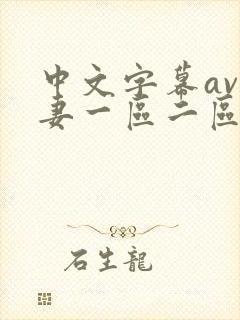 中文字幕av
妻一區二區
石生龍